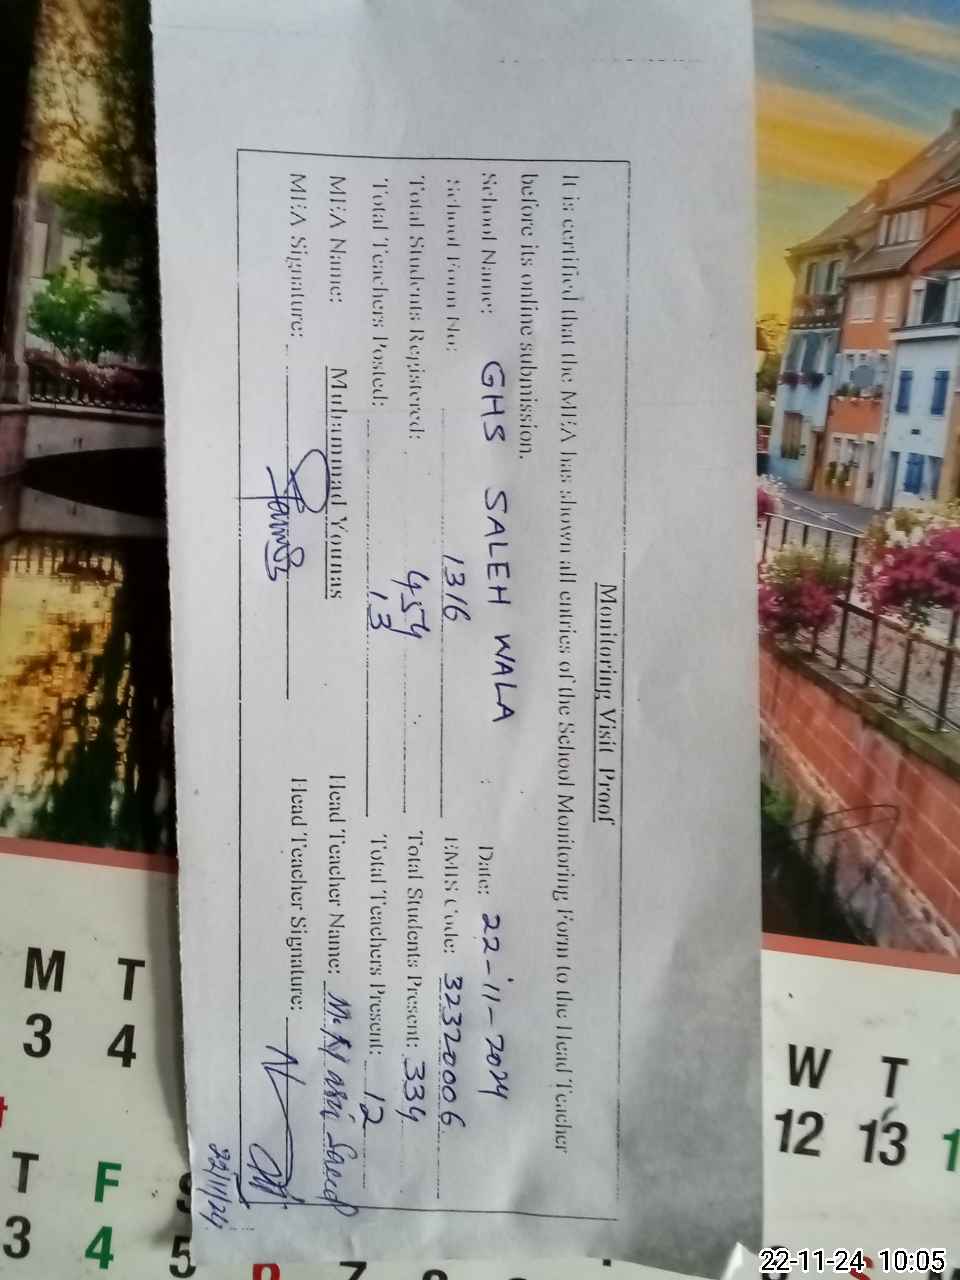 Monitoring Visit Proof
It is certified that the MEA has shown all entries of the School Monitoring Form to the Head Teacher
before its online submission.
School Name: GHS SALEH WALA Date: 22-11-2024
School Form No: 1316 EMIS Code: 32320006
Total Students Registered: 454 Total Students Present: 334
Total Teachers Posted: 13 Total Teachers Present: 12
MEA Name: Muhammad Younas Head Teacher Name: M. Nasir Saeed
MEA Signature: Head Teacher Signature:
22/11/24
M T
3 4
T F S
3 4 5
W T
12 13 1
22-11-24 10:05